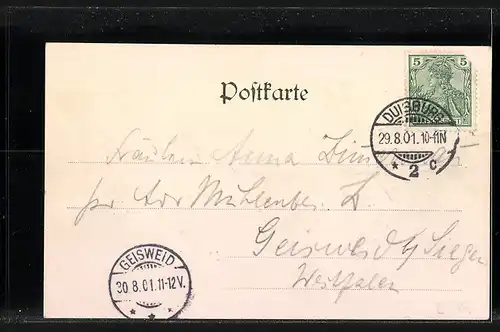 5
Postkarte
DUISBURG
29.8.01.10-11N
* 2 c
Fräulein Anna
pr Adr
Geisweid b/ Siegen
Westfalen
GEISWEID
30 8.01.11-12V.
* * *